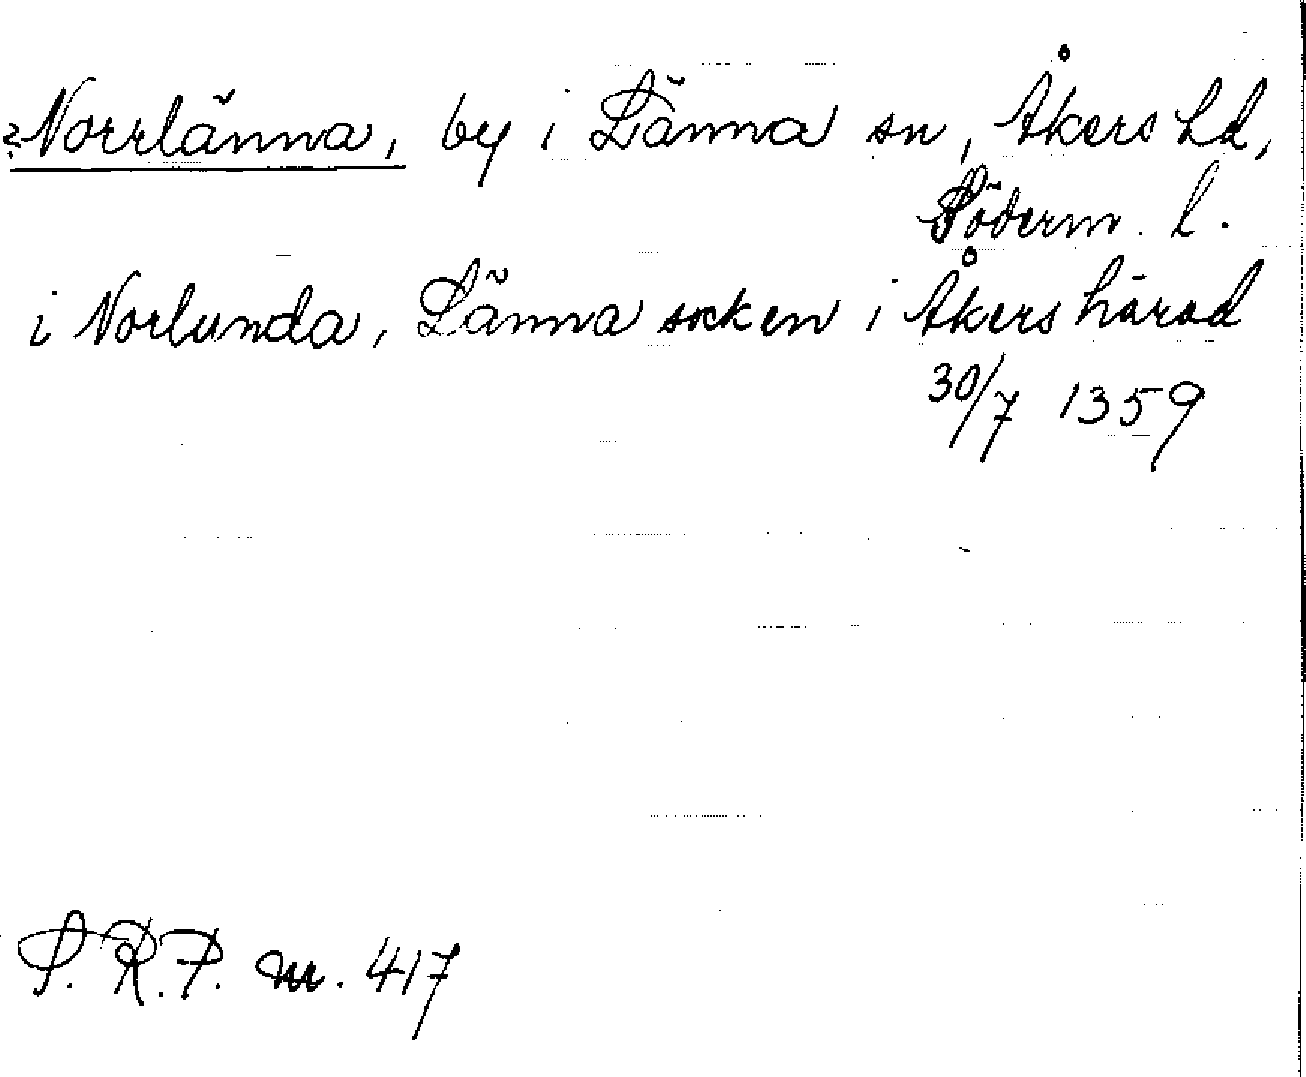 ? Norrlänna, by i Länna sn, Åkers hd,
Söderm. l.
i Norlunda, Länna socken i Åkers härad
30/7 1359
S.R.P. nr. 417